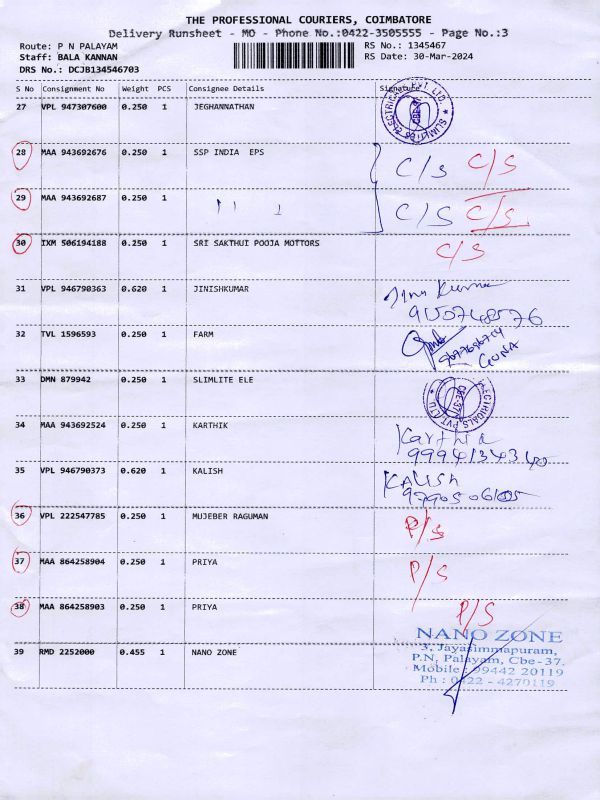 THE PROFESSIONAL COURIERS, COIMBATORE
Delivery Runsheet - MO - Phone No.:0422-3505555 - Page No.:3
Route: P N PALAYAM
RS No.: 1345467
Staff: BALA KANNAN
RS Date: 30-Mar-2024
DRS No.: DCJB134546703
S No Consignment No Weight PCS Consignee Details Signature
27 VPL 947307600 0.250 1 JEGHANNATHAN
28 MAA 943692676 0.250 1 SSP INDIA EPS C/S C/S
29 MAA 943692687 0.250 1 C/S C/S
30 IXM 506194188 0.250 1 SRI SAKTHUI POOJA MOTTORS C/S
31 VPL 946790363 0.620 1 JINISHKUMAR
32 TVL 1596593 0.250 1 FARM
GUNA
33 DMN 879942 0.250 1 SLIMLITE ELE
34 MAA 943692524 0.250 1 KARTHIK
9994134340
35 VPL 946790373 0.620 1 KALISH KALISH
36 VPL 222547785 0.250 1 MUJEBER RAGUMAN P/S
37 MAA 864258904 0.250 1 PRIYA P/S
38 MAA 864258903 0.250 1 PRIYA P/S
39 RMD 2252000 0.455 1 NANO ZONE
NANO ZONE
3, Jayasimmapuram,
P.N. Palayam, Cbe-37.
Mobile: 99442 20119
Ph : 0422 - 4270119